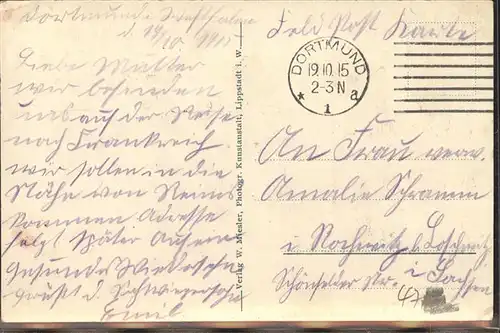 Dortmund i. Westfalen
d. 19/10. 1915
Liebe Mutter
wir befinden
uns auf der Reise
nach Frankreich
wir sollen in die
Nähe von Reims
kommen Adresse
folgt später Auf ein
Gesundes Wiedersehn
grüßt d. Schwiegersohn
Emil
Verlag W. Miesler, Photogr. Kunstanstalt, Lippstadt i. W.
Feld Post Karte
DORTMUND
19.10.15
2-3N
* 1 a
An Frau verw.
Amalie Schramm
i Rochwitz b/Loschwitz
Schönfelder Str. i. Sachsen